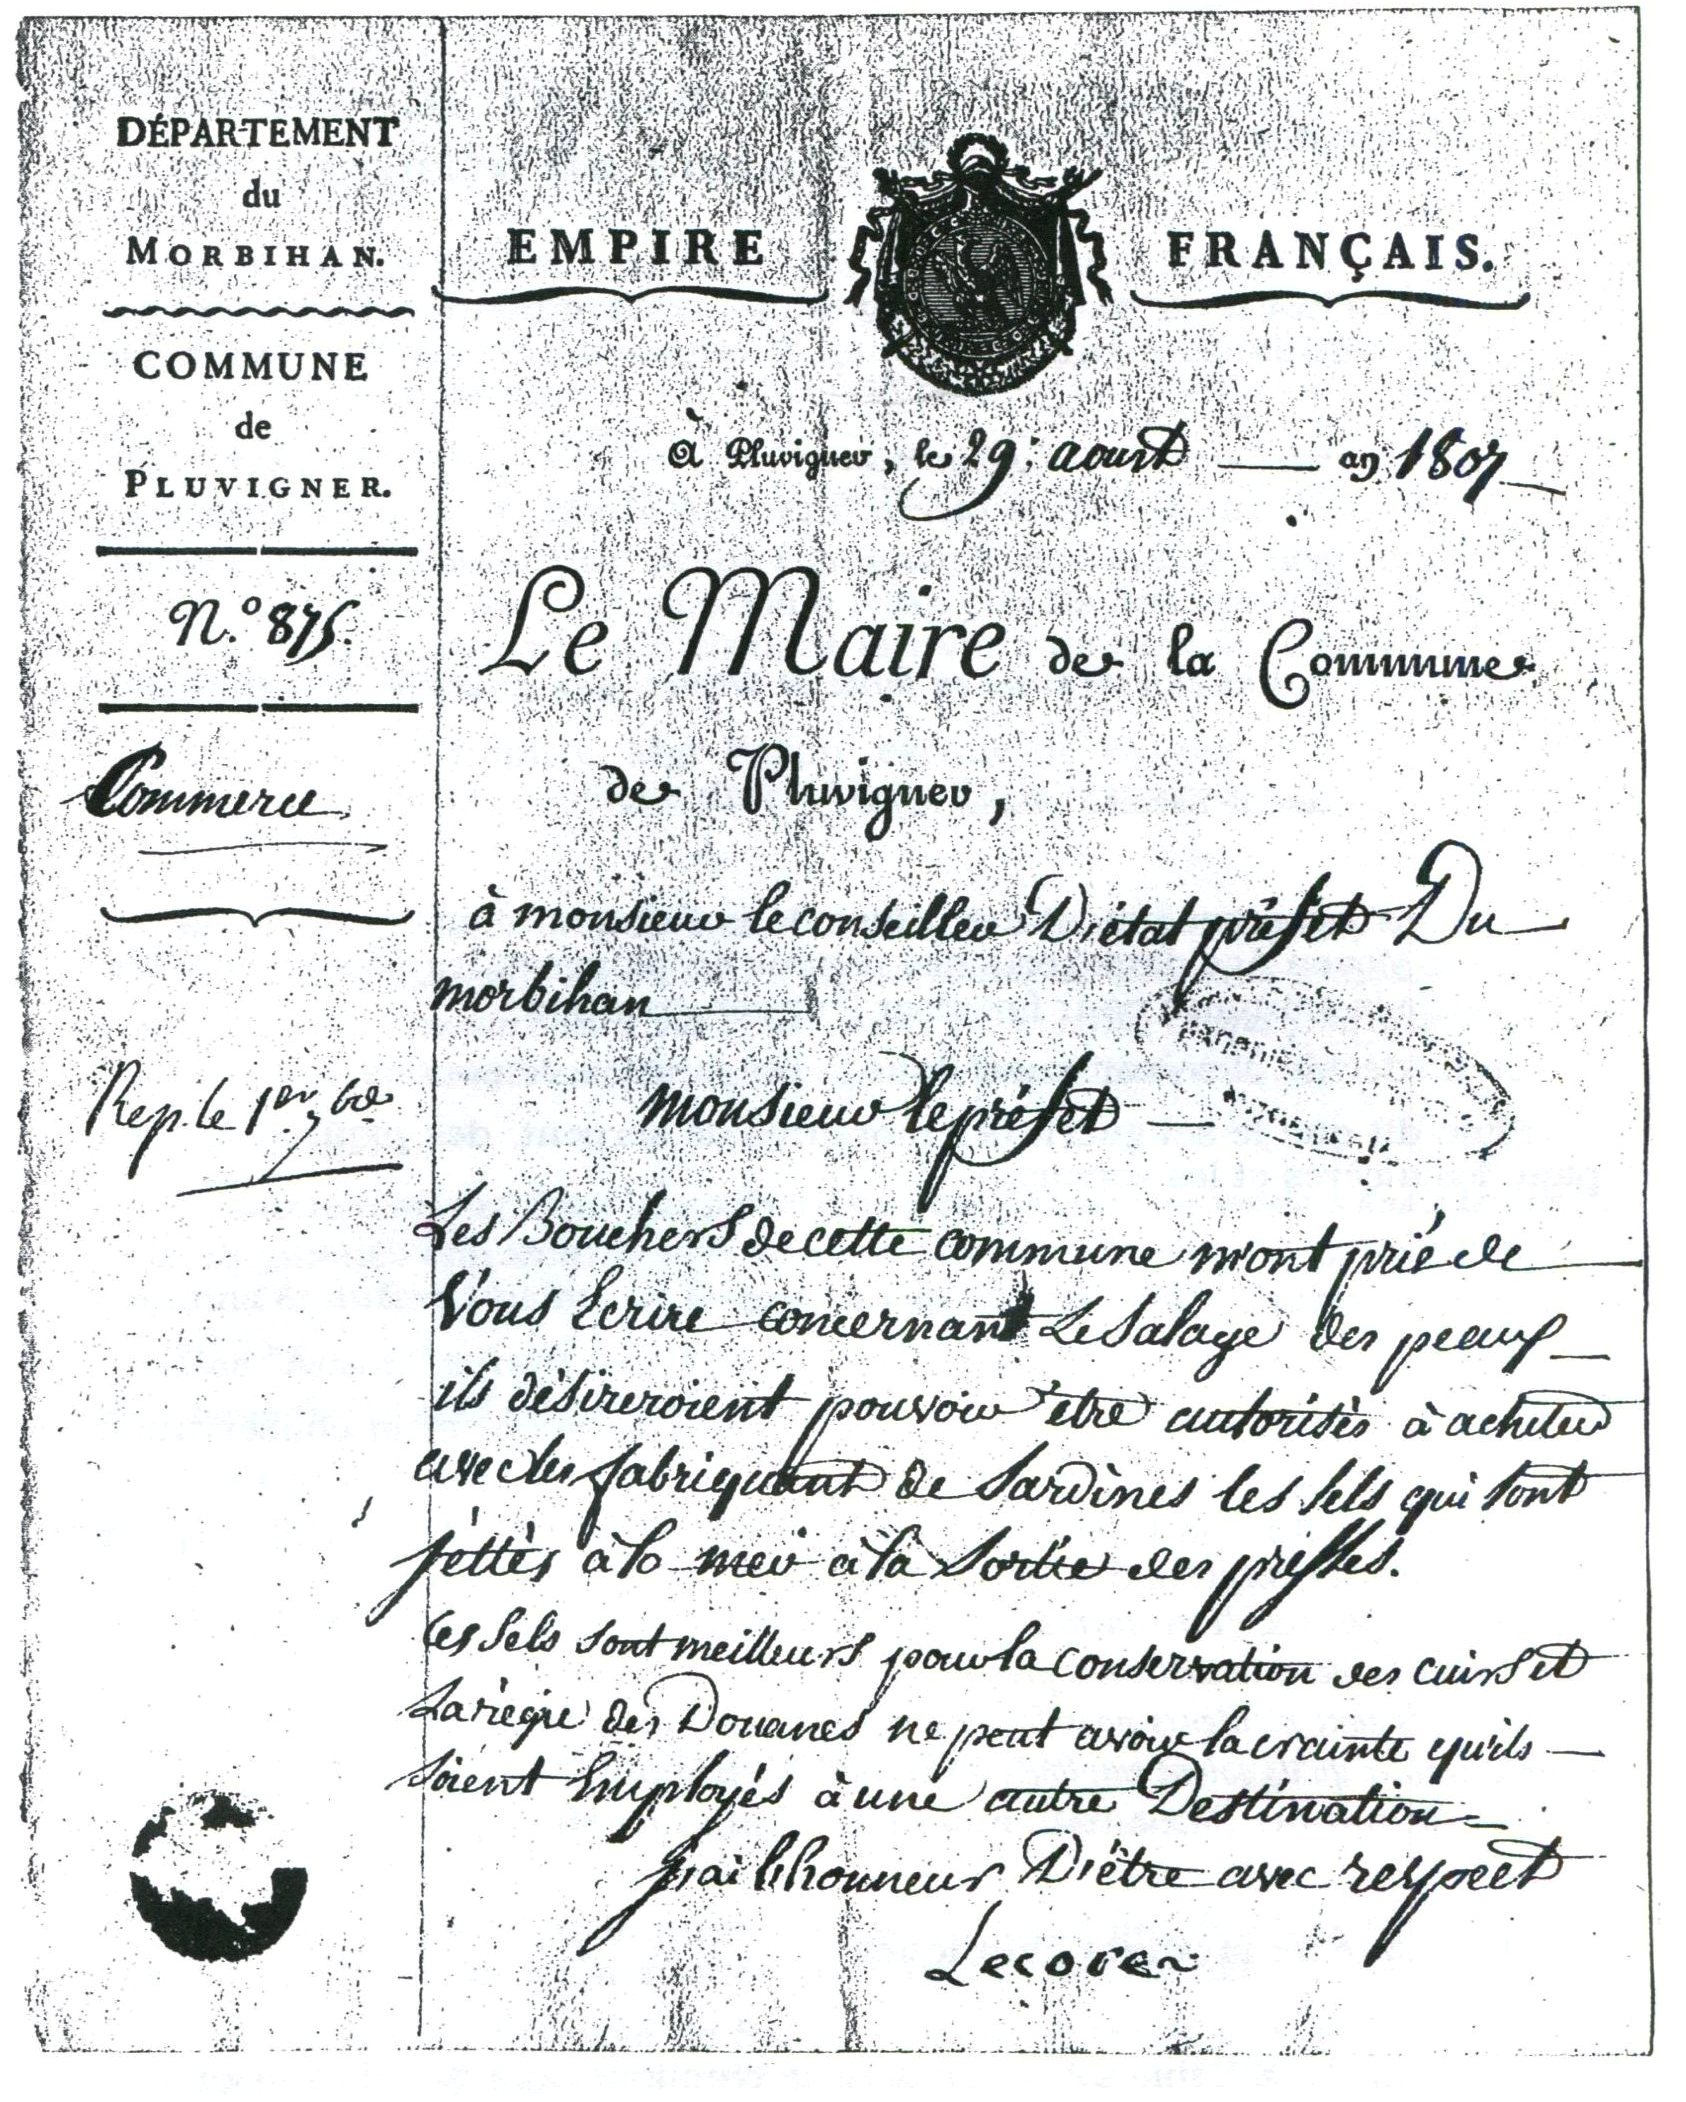 DÉPARTEMENT
du
MORBIHAN.
COMMUNE
de
PLUVIGNER.
N.º 875.
Commerce
Rep. le 1er 7bre
EMPIRE FRANÇAIS.
à Pluvigner, le 29: aoust — an 1807
Le Maire de la Commune
de Pluvigner,
à monsieur le conseiller D'état préfet Du
morbihan
monsieur le préfet —
Les Bouchers de cette commune m'ont prié de
Vous Ecrire concernant Le Salage des peaux
ils désireroient pouvoir être autorisés à acheter
avec les fabriquant de Sardines les Sels qui sont
jettés à la mer à la Sortie des presses.
Ces Sels sont meilleurs pour la conservation des cuirs et
La régie des Douanes ne peut avoir la crainte qu'ils —
soient Employés à une autre Destination
j'ai l'honneur D'être avec respect
Lecorer